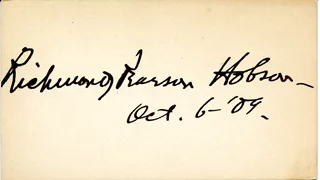 Richmond Pearson Hobson –
Oct. 6 – '09.